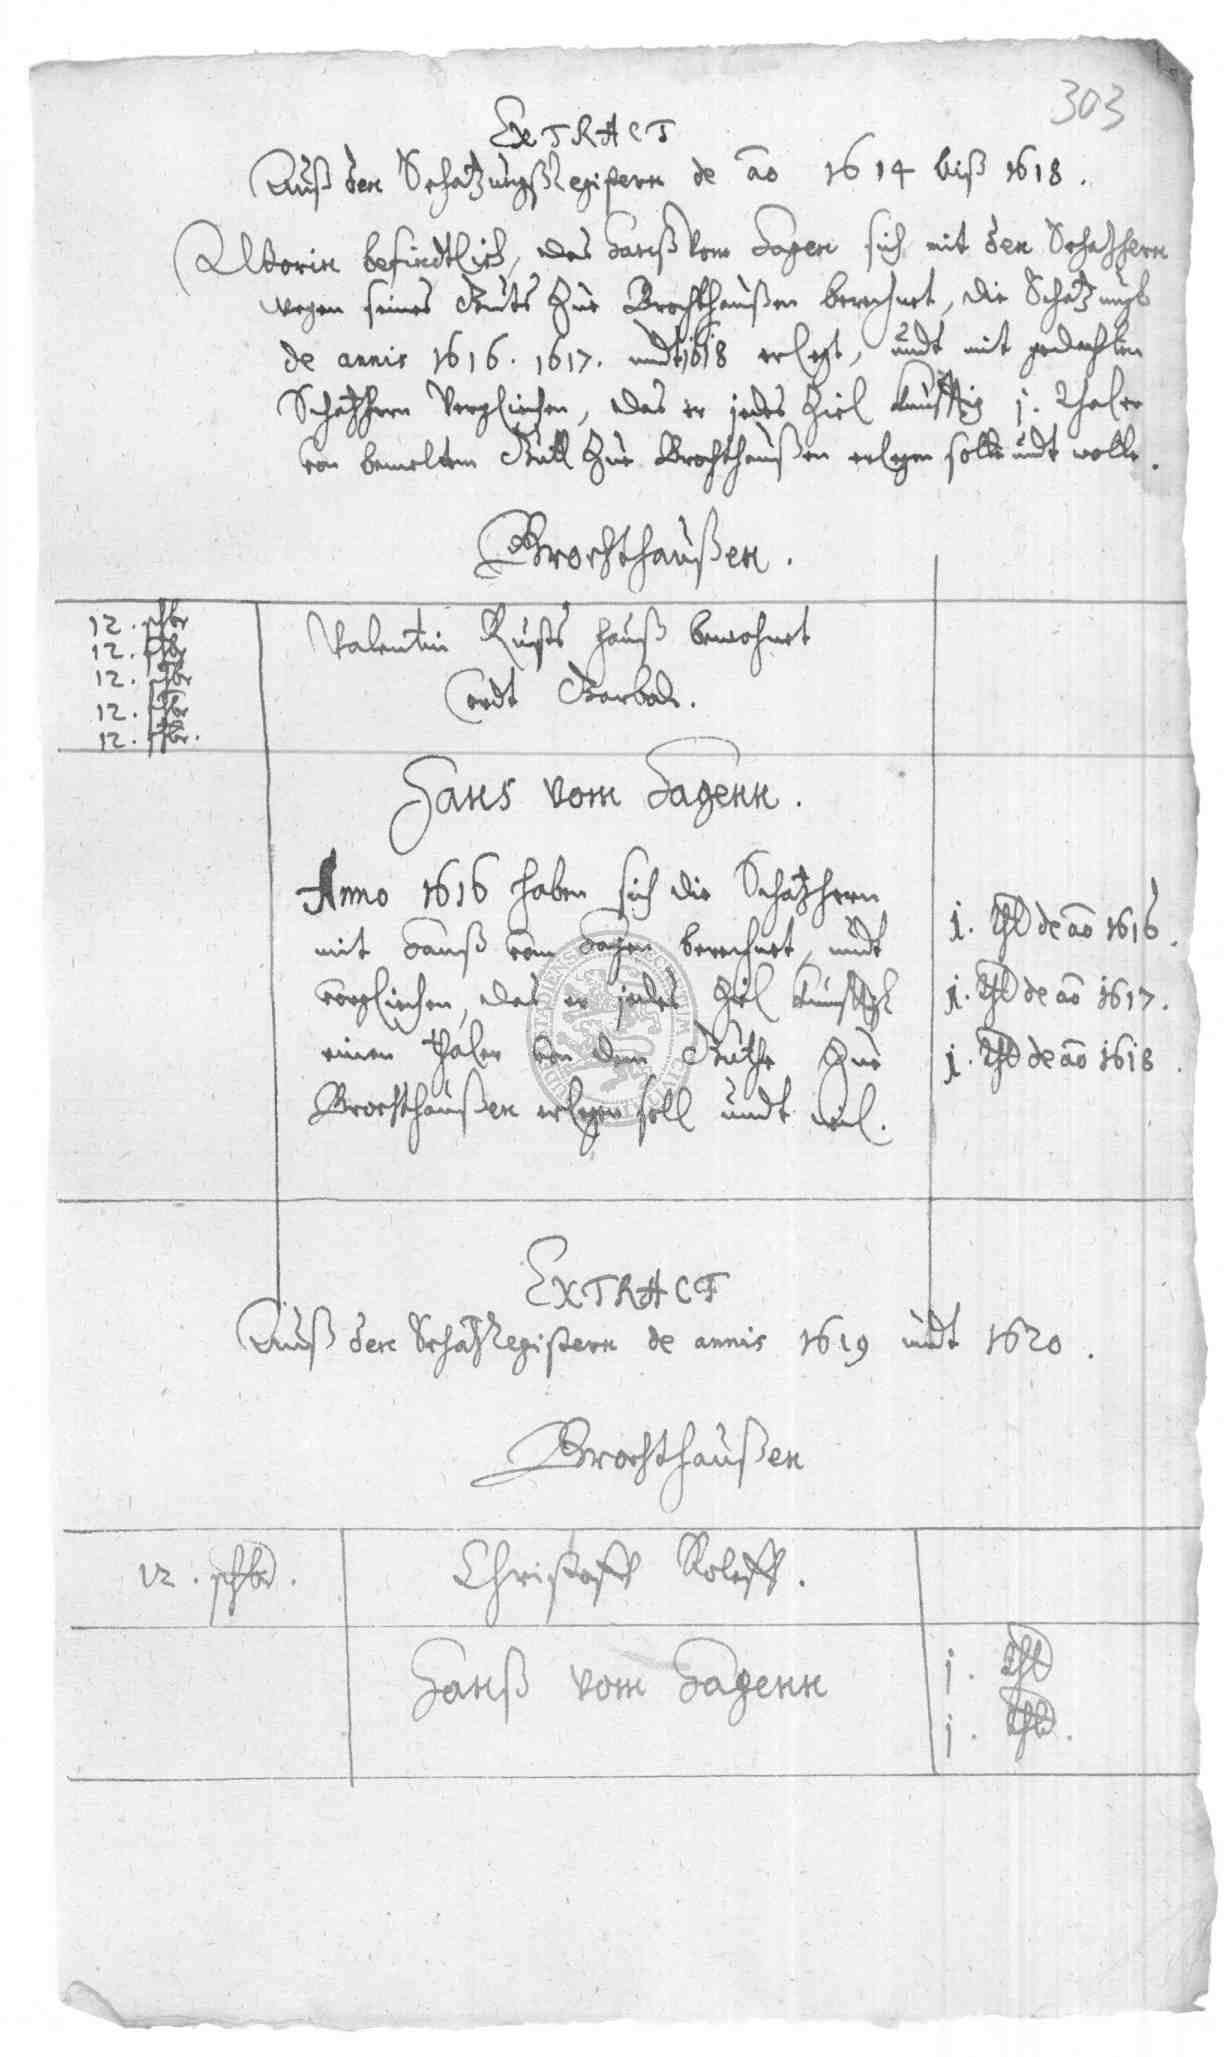 303
EXTRACT
Auß den Schatzungß Registern de ao 1614 biß 1618.
Worin befindtlich, das Hanß vom Hagen sich mit den Schatzhern
wegen seines Guts zue Brochthaußen berechnet, die Schatzungk
de annis 1616. 1617. undt 1618 erlegt, undt mit gedachten
Schatzhern verglichen, das er jedes Ziel kunfftig j. Thaler
von bemeltem Gutt zue Brochthaußen erlegen solle undt wolle.
Brochthaußen.
12. schbr
12. schbr
12. schbr
12. schbr
12. schbr.
Valentin Rusts hauß bewohnet
Cordt
Hans vom Hagenn.
Anno 1616 haben sich die Schatzhern
mit Hanß vom Hagen berechnet, undt
verglichen, das er jedes Ziel
einen thaler von dem Guthe zue
Brochthaußen erlegen soll undt wil.
j. thl de ao 1616.
j. thl de ao 1617.
j. thl de ao 1618.
EXTRACT
Auß den Schatz Registern de annis 1619 undt 1620.
Brochthaußen
12. schbr.
Christoff Roleff.
Hanß vom Hagenn
j. thl
j. thl.